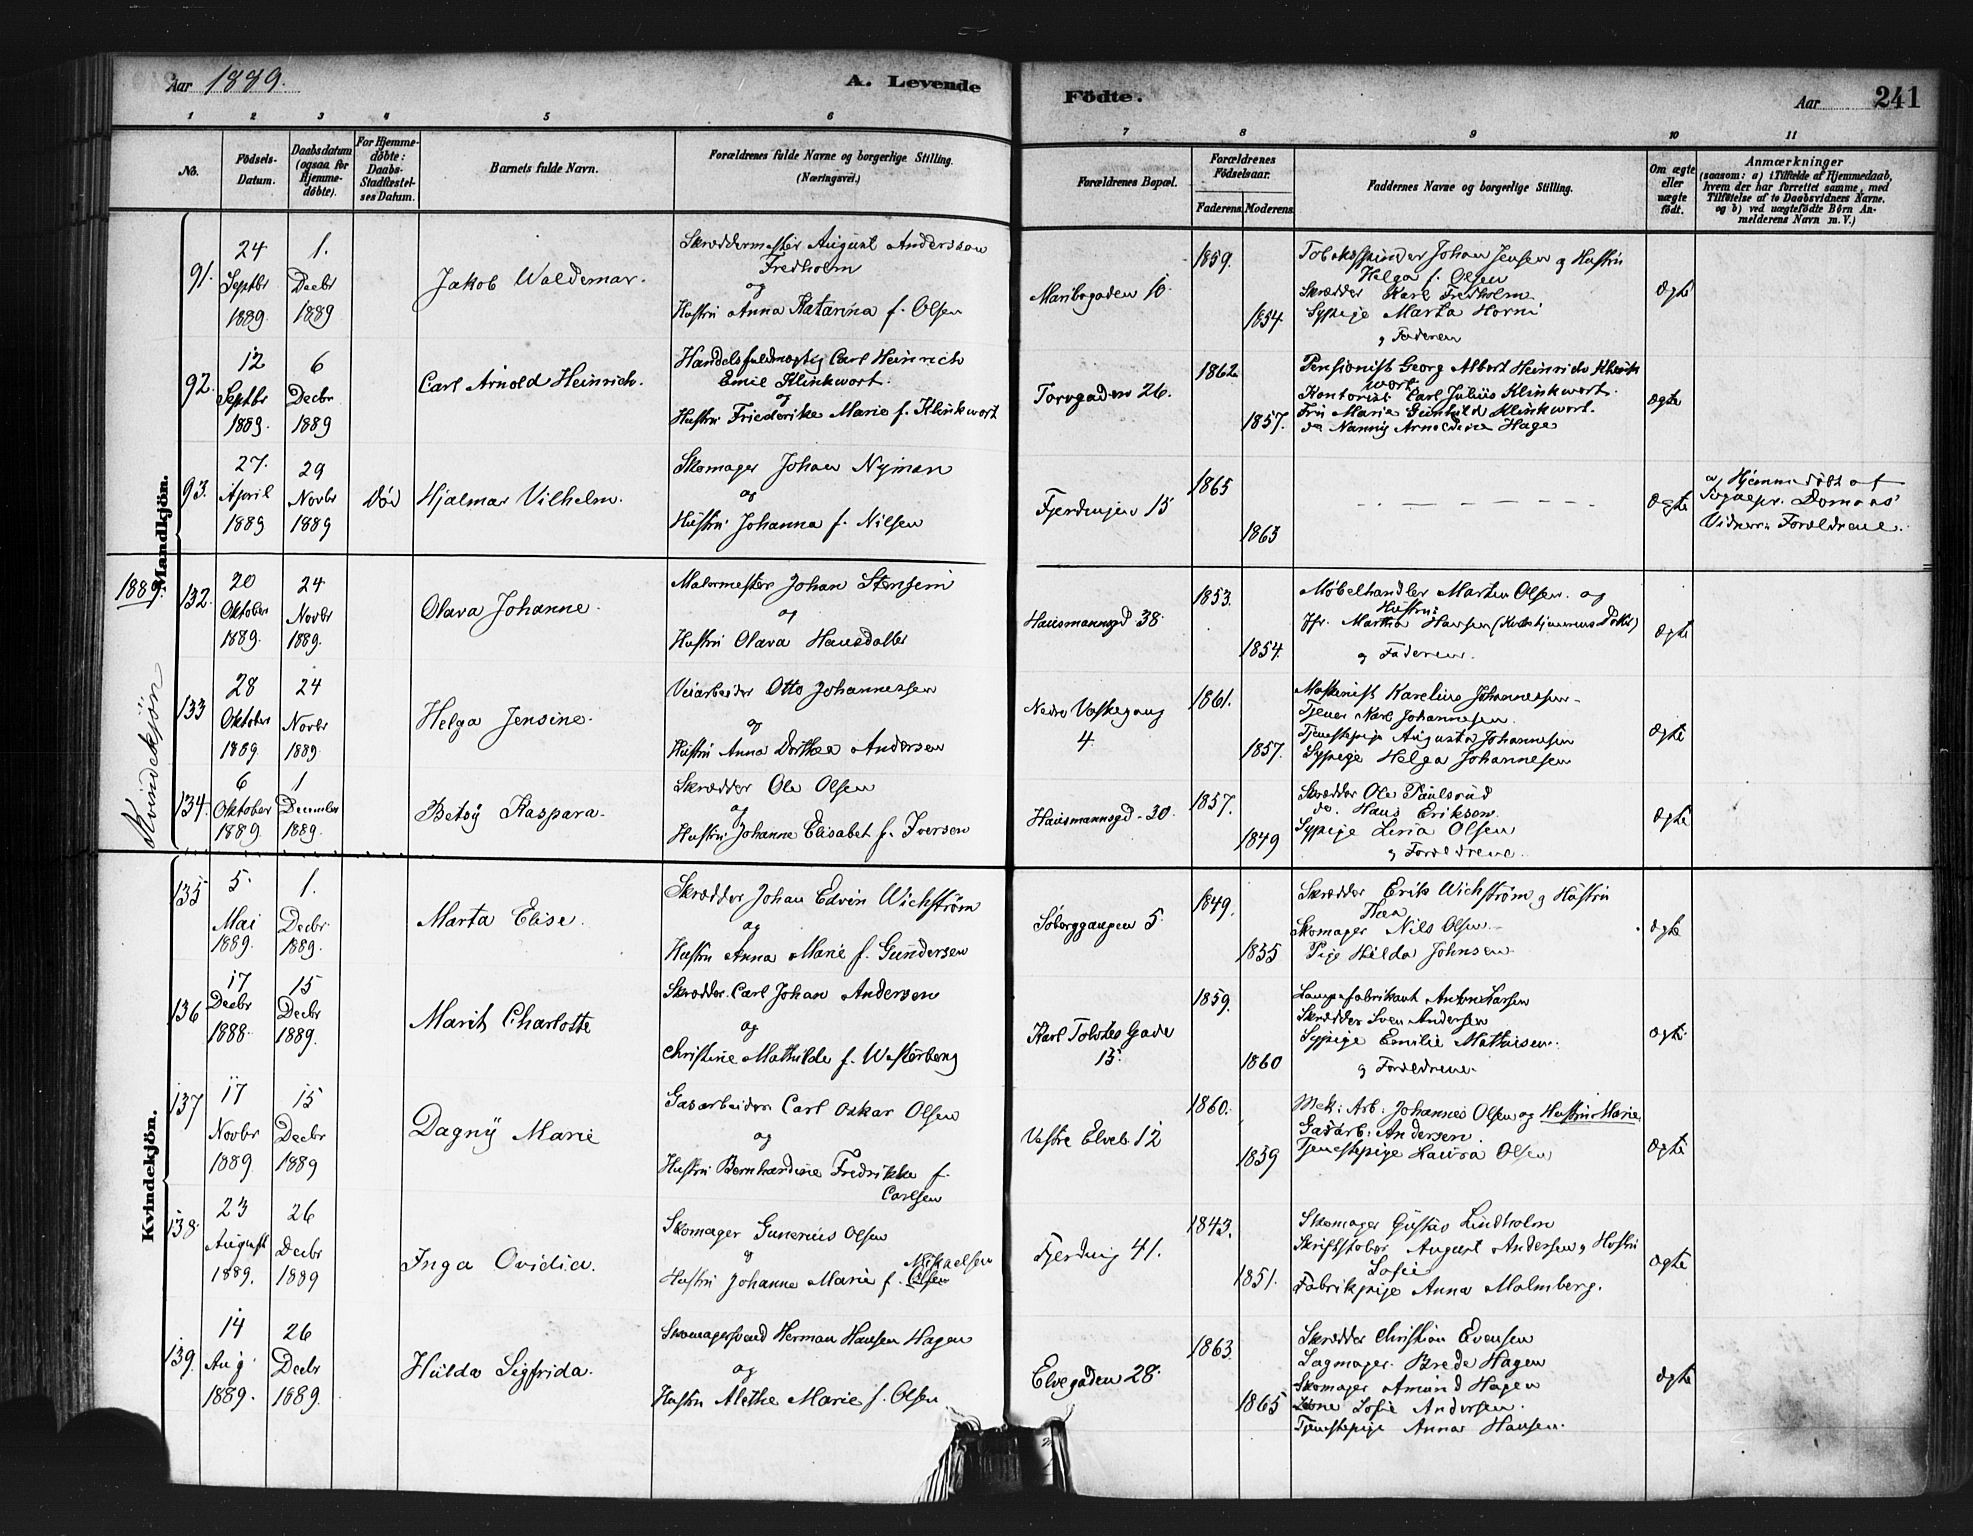 Aar 1889.
A. Levende
Födte.
Aar
241
1 2 3 4 5 6 7 8 9 10 11
No.
Födsels-
Datum.
Daabsdatum
(ogsaa for
Hjemme-
döbte).
For Hjemme-
döbte:
Daabs-
Stadfæstel-
ses Datum.
Barnets fulde Navn.
Forældrenes fulde Navne og borgerlige Stilling.
(Næringsvei.)
Forældrenes Bopæl.
Forældrenes
Födselsaar.
Faderens. Moderens.
Faddernes Navne og borgerlige Stilling.
Om ægte
eller
uægte
födt.
Anmærkninger
(saasom: a) i Tilfælde af Hjemmedaab,
hvem der har forrettet samme, med
Tilföielse af to Daabsvidners Navne.
og b) ved uægtefödte Börn An-
melderens Navn m. V.)
Mandkjön.
91.
24
Septbr
1889.
1.
Decbr
1889
Jakob Waldemar.
Skræddermester August Andersson
Fredholm
og
Hustru Anna Katarina f. Olsen
Maribogaden 10.
1859.
1854.
Tobakspinder Johan Jensen og Hustru
Helga f. Olsen
Skrædder Karl Fredholm.
Sypige Marta Horni
og Faderen
Ægte
92.
12
Septbr
1889.
6
Decbr
1889
Carl Arnold Heinrich.
Handelsfuldmægtig Carl Heinrich
Emil Klinkwort.
og
Hustru Friederike Marie f. Klinkwort
Torvgaden 26.
1862
1857.
Pensionist Georg Albert Heinrich Klink
wort.
Kontorist Carl Julius Klinkwort.
Fru Maria Gunhild Klinkwort.
do Nanny Arnoldine Hage
Ægte
93.
27.
April
1889
29
Novbr
1889
Död
Hjalmar Vilhelm.
Skomager Johan Nyman
og
Hustru Johanna f. Nilsen
Fjerdingen 15
1865
1863
Ægte
a, Hjemmedöbt af
Sognepr. Domaas
Vidner: Forældrene.
1889.
Kvindekjön
132.
20
Oktober
1889.
24
Novbr
1889.
Olava Johanne.
Malermester Johan Stensen
og
Hustru Olava Hansdatter
Hausmannsgd 38.
1853.
1854.
Møbelhandler Martin Olsen. og
Hustru:
Jfr. Martha Hansen
og Faderen.
Ægte
133
28
Oktober
1889.
24
Novbr
1889.
Helga Jensine.
Veiarbeider Otto Johannessen
og
Hustru Anna Dorthea Andersen
Nedre Vaskegang
4.
1861.
1857.
Maskinist Karelius Johannessen.
Tjener Karl Johannesen.
Tjenestepige Augusta Johannesen
Sypige Helga Johannesen
Ægte
134.
6
Oktober
1889.
1
December
1889.
Betsy Kaspara.
Skrædder Ole Olsen
og
Hustru Johanne Elisabet f. Iversen
Hausmannsgd. 30.
1857.
1849
Skrædder Ole Paulsrud
do. Hans Eriksen.
Sypige Lina Olsen
og Forældrene.
Ægte
Kvindekjön.
135
5.
Mai
1889.
1.
Decbr.
1889.
Marta Elise.
Skrædder Johan Edvin Wichström
og
Hustru Anna Marie f. Gundersen
Söberggangen 5.
1849.
1855
Skrædder Erik Wichström og Hustru
Thea
Skomager Nils Olsen.
Pige Hilda Johnsen.
Ægte
136
17
Decbr
1888.
15
Decbr
1889.
Marit Charlotte
Skrædder. Carl Johan Andersen
og
Christine Mathilde f. Westerberg
Karl Tolstes Gade
15.
1859.
1860
Lampefabrikant Anton Larsen
Skrædder Sven Andersen
Sypige Emilie Mathisen.
og Forældrene.
Ægte
137
17
Novbr
1889.
15
Decbr
1889
Dagny Marie
Gasarbeider Carl Oskar Olsen
og
Hustru Bernhardine Fredrikke f.
Carlsen
Vestre Elveb. 12
1860.
1859
Mek: Arb: Johannes Olsen og Hustru Marie.
Gasarb: Andersen.
Tjenestepige Laura Olsen
Ægte
138.
23
August
1889.
26
Decbr
1889
Inga Ovidia.
Skomager Gunerius Olsen
og
Hustru Johanne Marie f. Olsen Mikaelsen
Fjerding 41.
1843.
1851.
Skomager Gustav Lindholm
Skriftstöber August Andersen og Hustru
Sofie
Fabrikpige Anna Malmberg.
Ægte
139.
14
Aug.
1889.
26
Decbr
1889.
Hulda Sigfrida.
Skomagersvend Herman Hansen Hagen
og
Hustru Alethe Marie f. Olsen
Elvegaden 28.
1863.
1865
Skrædder Christian Evensen
Sagmager. Brede Hagen
Skomager Amund Hagen
Kone Sofie Andersen.
Tjenestepige Anna Hansen.
Ægte